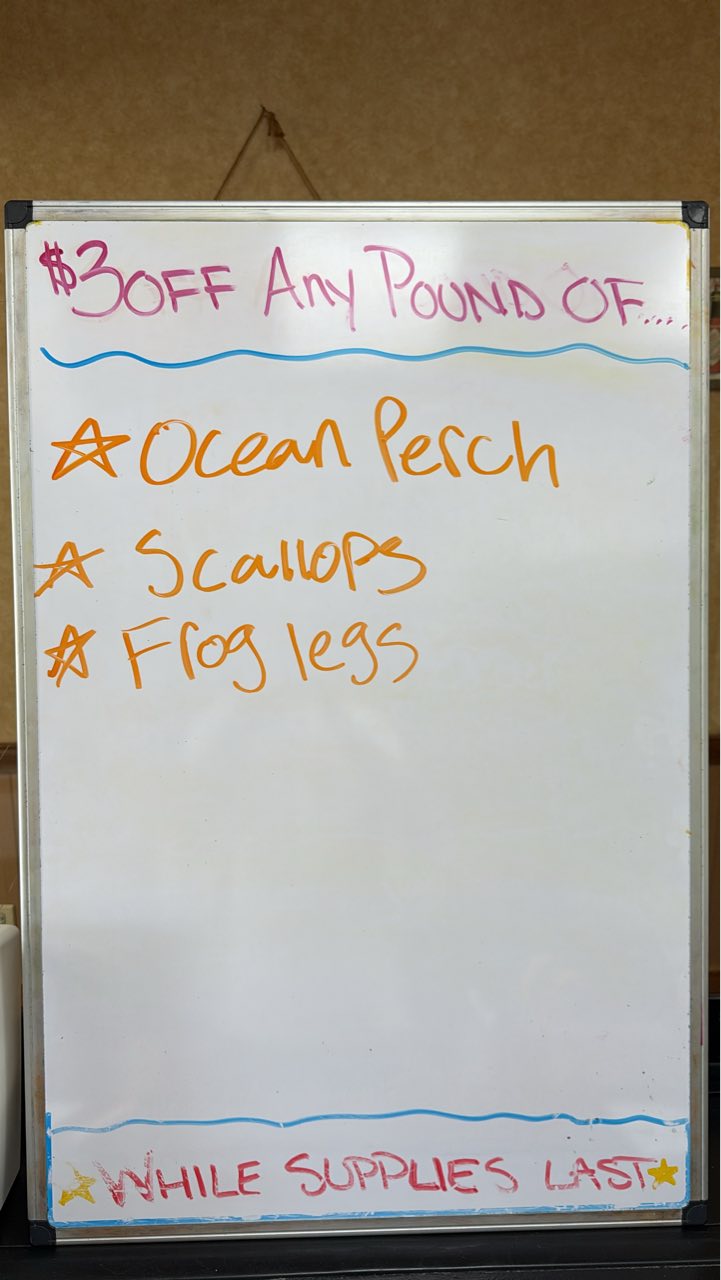 $3 OFF Any POUND OF....
☆ Ocean Perch
☆ Scallops
☆ Frog legs
★ WHILE SUPPLIES LAST ★